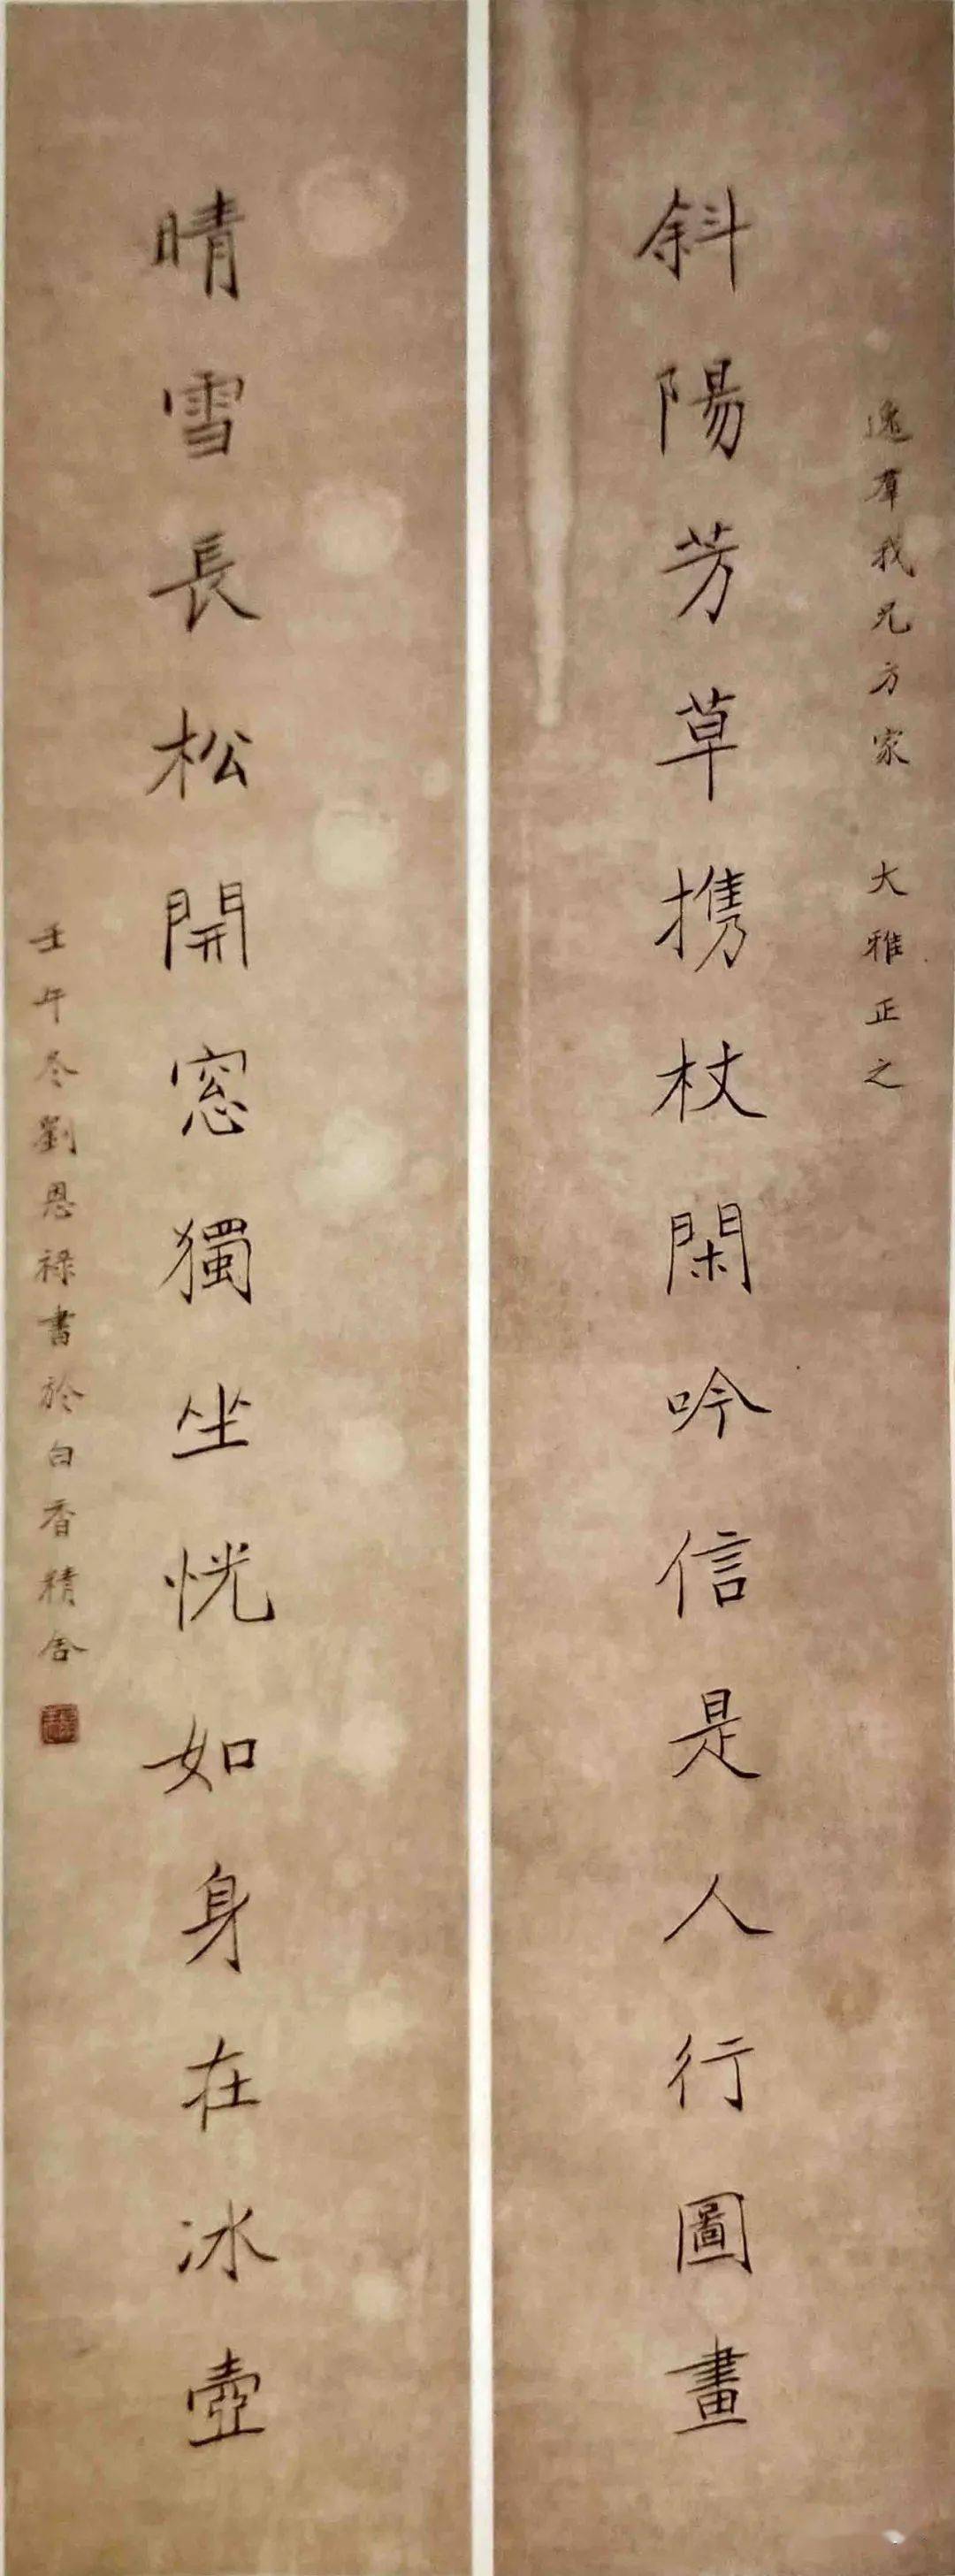 逸羣我兄方家 大雅正之
斜陽芳草攜杖閑吟信是人行圖畫
晴雪長松開窓獨坐恍如身在冰壺
壬午冬劉恩祿書於白香精舍